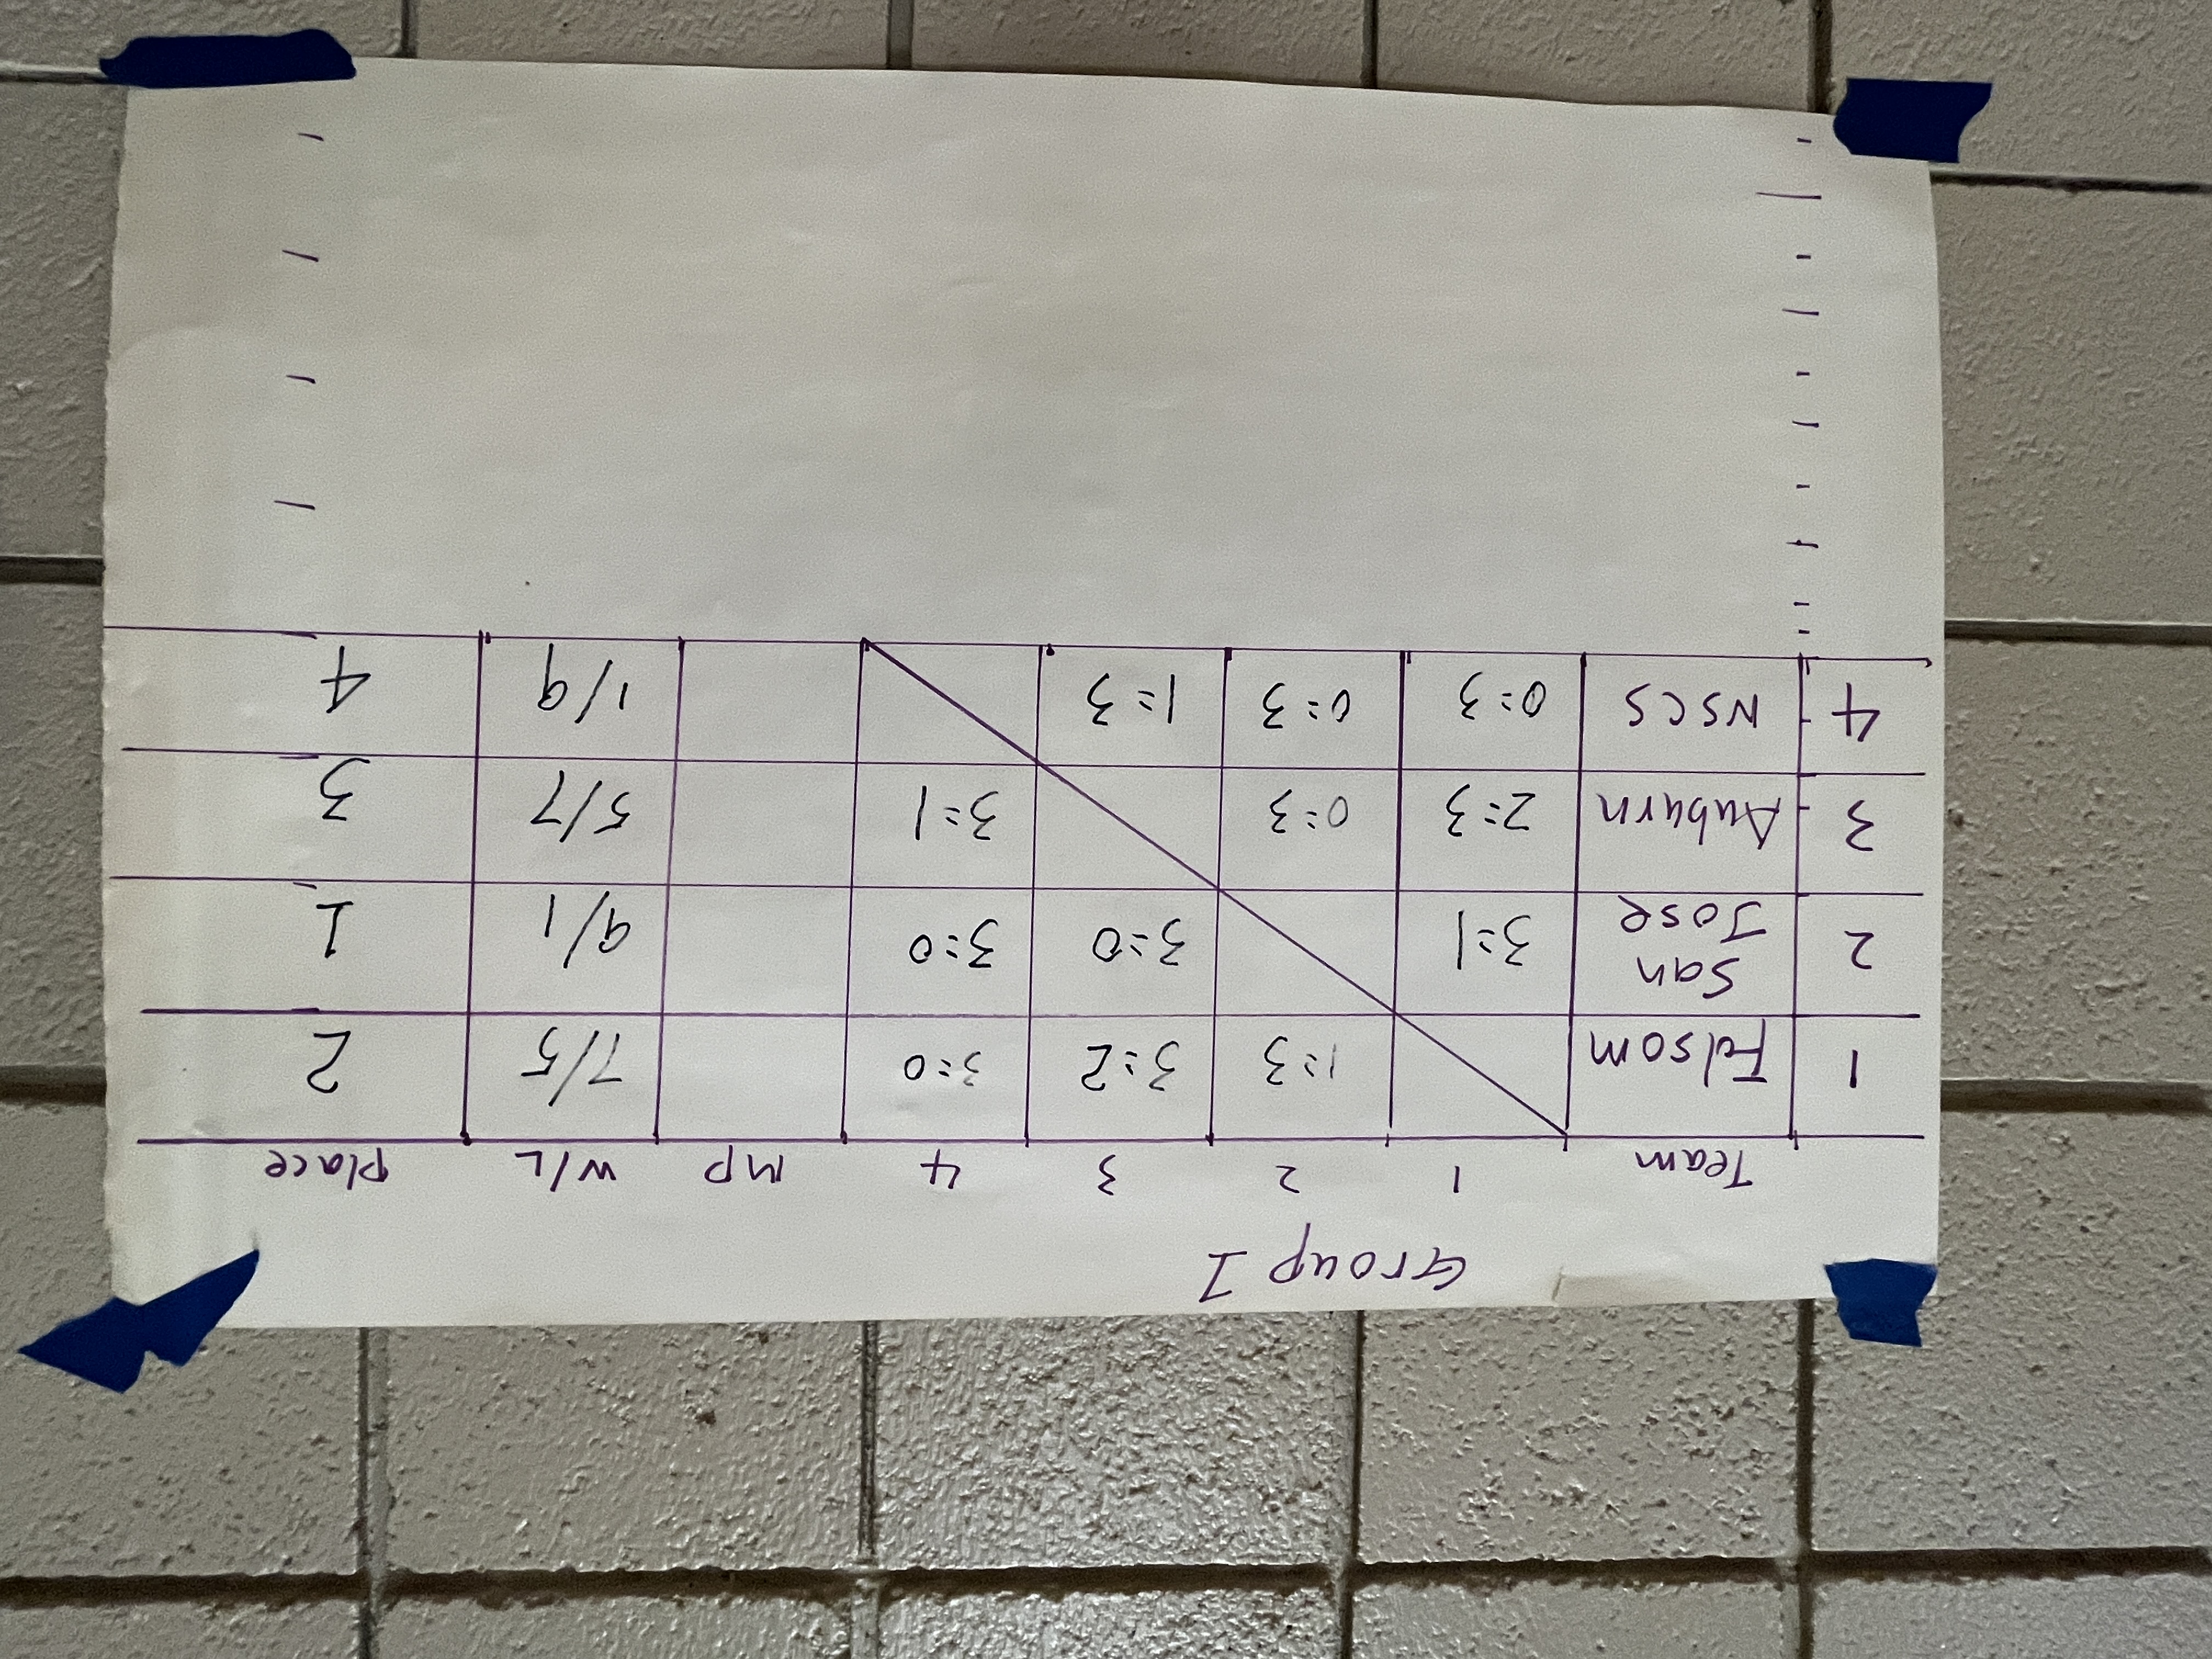 Group 1
Team 1 2 3 4 MP W/L Place
1 Folsom 1=3 3=2 3=0 7/5 2
2 San Jose 3=1 3=0 3=0 9/1 1
3 Auburn 2=3 0=3 3=1 5/7 3
4 NSCS 0=3 0=3 1=3 1/9 4